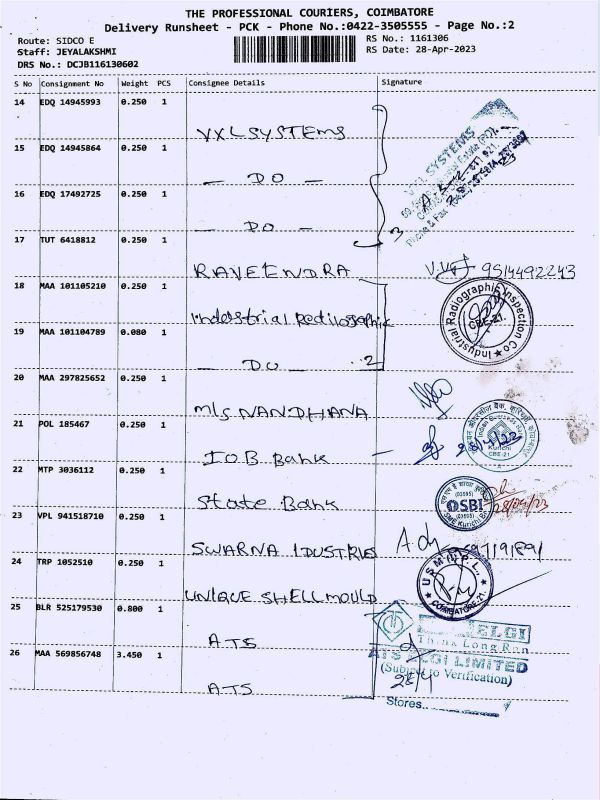 THE PROFESSIONAL COURIERS, COIMBATORE
Delivery Runsheet - PCK - Phone No.:0422-3505555 - Page No.:2
Route: SIDCO E
RS No.: 1161306
Staff: JEYALAKSHMI
RS Date: 28-Apr-2023
DRS No.: DCJB116130602
S No Consignment No Weight PCS Consignee Details Signature
14 EDQ 14945993 0.250 1
VXLSYSTEMS
15 EDQ 14945864 0.250 1
— DO —
16 EDQ 17492725 0.250 1
— DO —
3
VXL SYSTEMS
17 TUT 6418812 0.250 1
RAVEENDRA
9514492243
18 MAA 101105210 0.250 1
Industrial Radilographic
Industrial Radiographic Inspection Co
CBE-21.
19 MAA 101104789 0.080 1
— DO — 2
20 MAA 297825652 0.250 1
M/s NANDHANA
21 POL 185467 0.250 1
IOB Bank
Kurichi
CBE-21
22 MTP 3036112 0.250 1
State Bank
SBI
28/04/23
23 VPL 941518710 0.250 1
SWARNA IDUSTRIES
24 TRP 1052510 0.250 1
UNIQUE SHELL MOULD
USM(I)P.L.,
COIMBATORE-21
25 BLR 525179530 0.800 1
ATS
ELGI
Think Long Run
26 MAA 569856748 3.450 1
ATS
ATS ELGI LIMITED
(Subject to Verification)
28/4
Stores